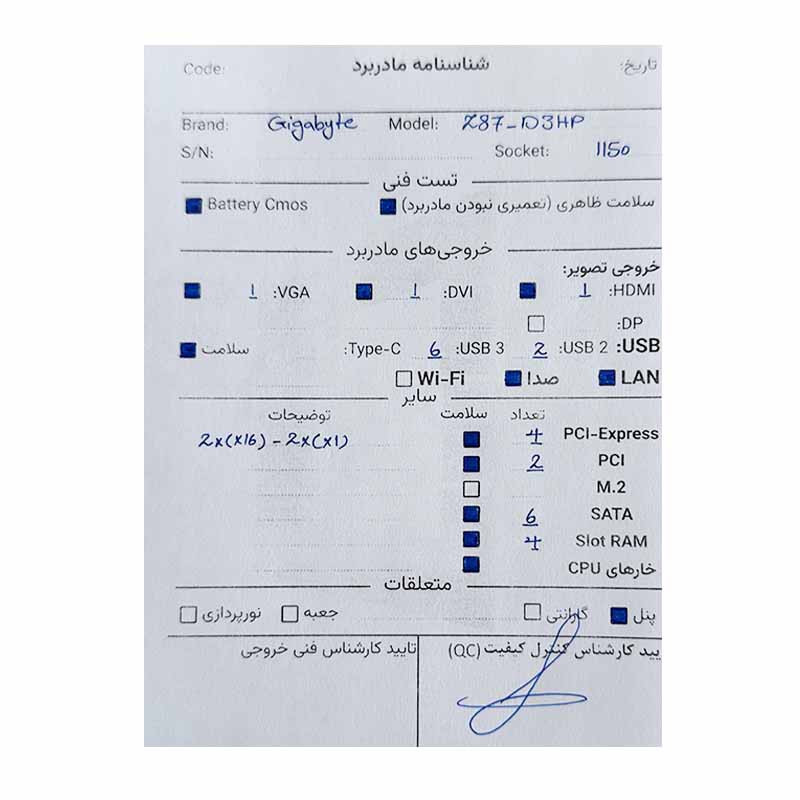 شناسنامه مادربرد
تاریخ:
Code:
Brand: Gigabyte Model: Z87-D3HP
S/N: Socket: 1150
تست فنی
سلامت ظاهری (تعمیری نبودن مادربرد) Battery Cmos
خروجی‌های مادربرد
خروجی تصویر:
HDMI: 1 DVI: 1 VGA: 1
DP:
USB: USB 2: 2 USB 3: 6 Type-C: سلامت
LAN صدا Wi-Fi
سایر
تعداد سلامت توضیحات
PCI-Express 4 2x(x16) - 2x(x1)
PCI 2
M.2
SATA 6
Slot RAM 4
خارهای CPU
متعلقات
پنل گارانتی جعبه نورپردازی
یید کارشناس کنترل کیفیت (QC) تایید کارشناس فنی خروجی